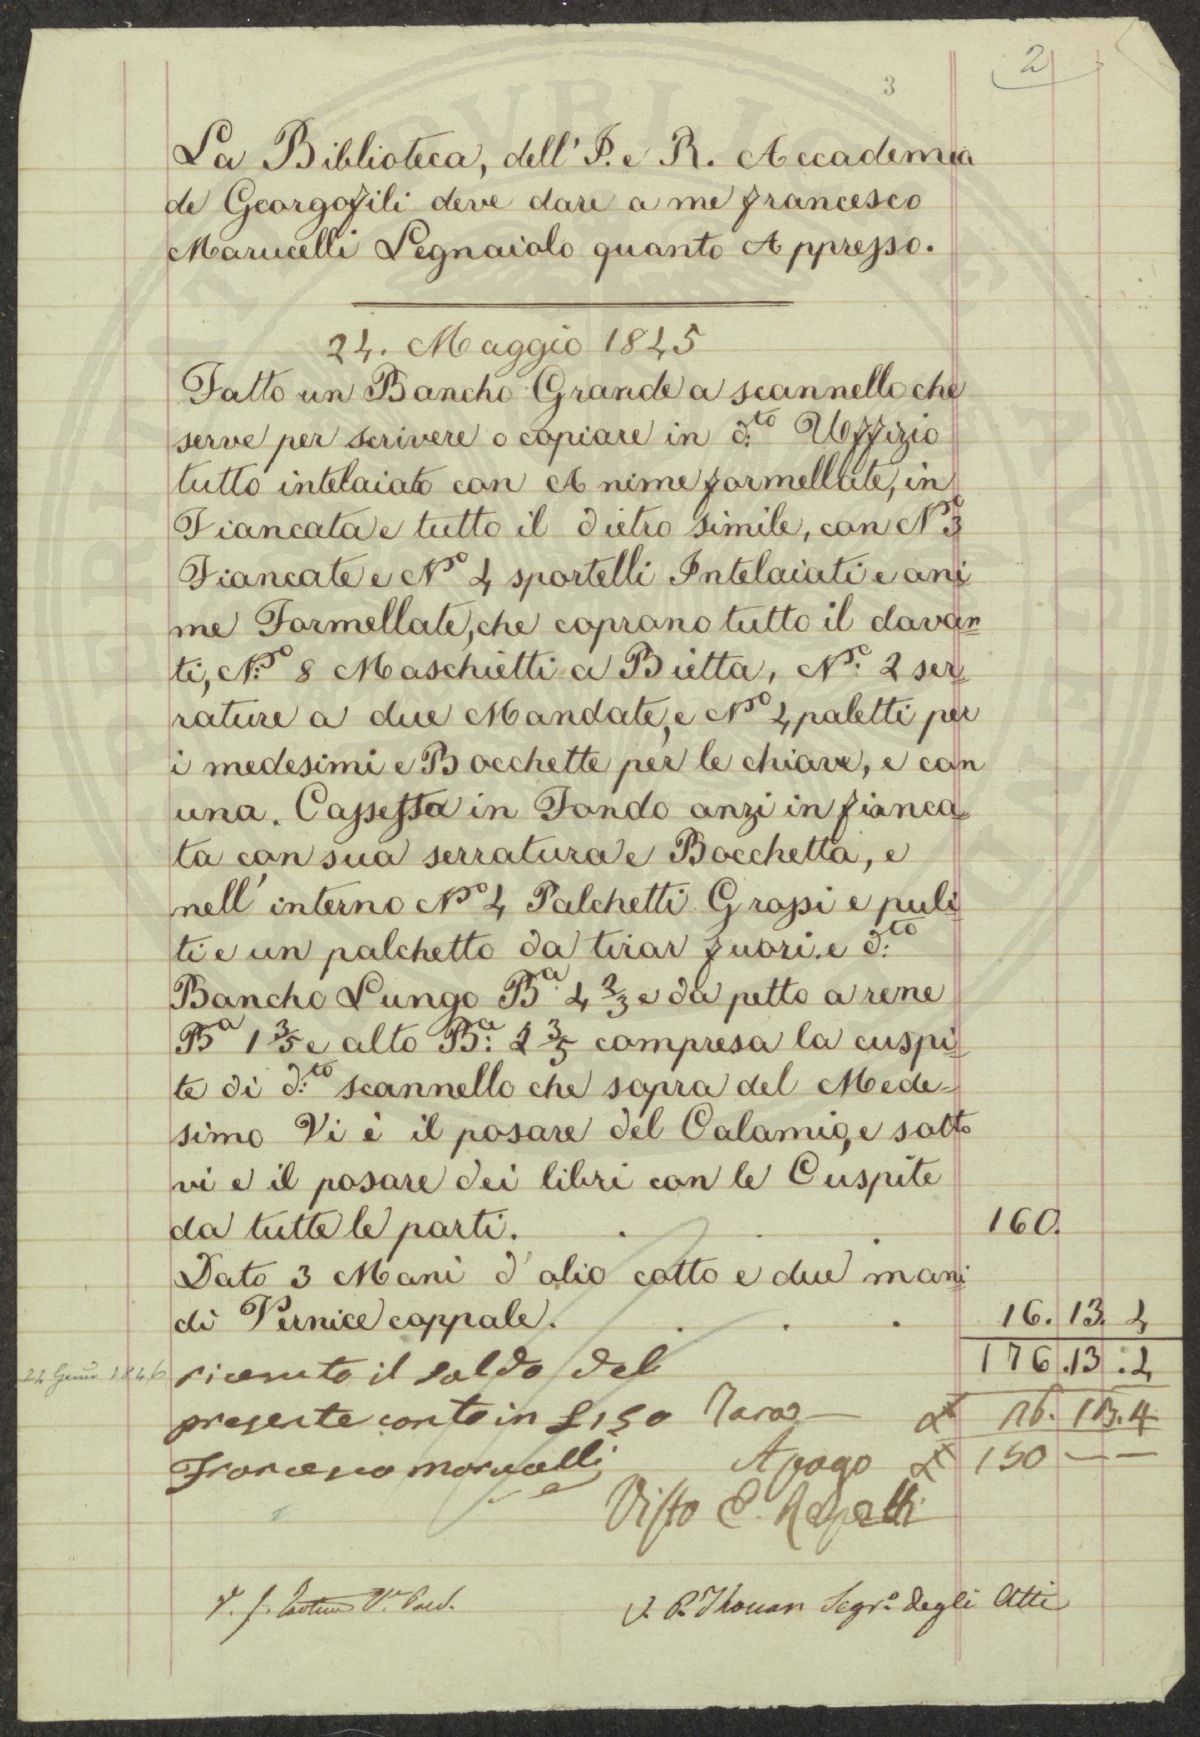 2
3
La Biblioteca, dell' I. e R. Accademia
de Georgofili deve dare a me francesco
Marucelli Legnaiolo quanto Appresso.
24. Maggio 1845
Fatto un Bancho Grande a scannello che
serve per scrivere o copiare in d:to Uffizio
tutto intelaiato con Anime formellate, in
Fiancata e tutto il dietro simile, con No 3
Fiancate e No 4 sportelli Intelaiati e ani
me Formellate, che coprano tutto il davan
ti, No 8 Maschietti a Bietta, No: 2 ser
rature a due Mandate, e No 4 paletti per
i medesimi e Bocchette per le chiave, e con
una. Cassetta in Fondo anzi in fianca
ta con sua serratura e Bocchetta, e
nell' interno No 4 Palchetti Grossi e puli
ti e un palchetto da tirar fuori. e d:to
Bancho Lungo Ba 4 2/3 e da petto a rene
Ba 1 3/5 e alto Ba: 2 3/5 compresa la cuspi
te di d:to scannello che sopra del Mede-
simo Vi è il posare del Calamio, e sotto
vi e il posare dei libri con le Cuspite
da tutte le parti. . . . 160.
Dato 3 Mani d'olio cotto e due mani
di Vernice coppale. . . . 16. 13. 4
176. 13. 4
24 Genn 1846 ricevuto il saldo del
presente conto in £ 150 Tara — 26. 13. 4
Francesco Marucelli Apago 150 — —
Visto E. Repetti
P. Thouar Segr.o degli Atti